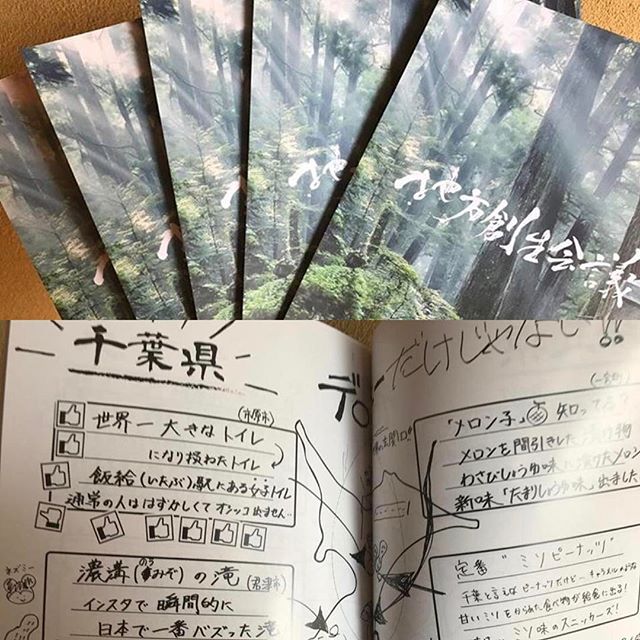 地方創生会議
千葉県
(市原市)
世界一大きなトイレ
になり損ねたトイレ
飯給(いたぶ)駅にある女子トイレ
通常の人ははずかしくてオシッコ出ません…
濃溝(のうみぞ)の滝
(君津市)
インスタで瞬間的に
日本で一番バズった滝
だけじゃない!!
「メロン子」知ってる?
メロンを間引きした漬け物
わさびしょうゆ味に漬けたメロン
新味「たまりしょうゆ味」出ました
定番 "ミソピーナッツ"
千葉と言えばピーナッツだけど
甘いミソをからめた食べ物が給食に出る!
ミソ味のスニッカーズ!